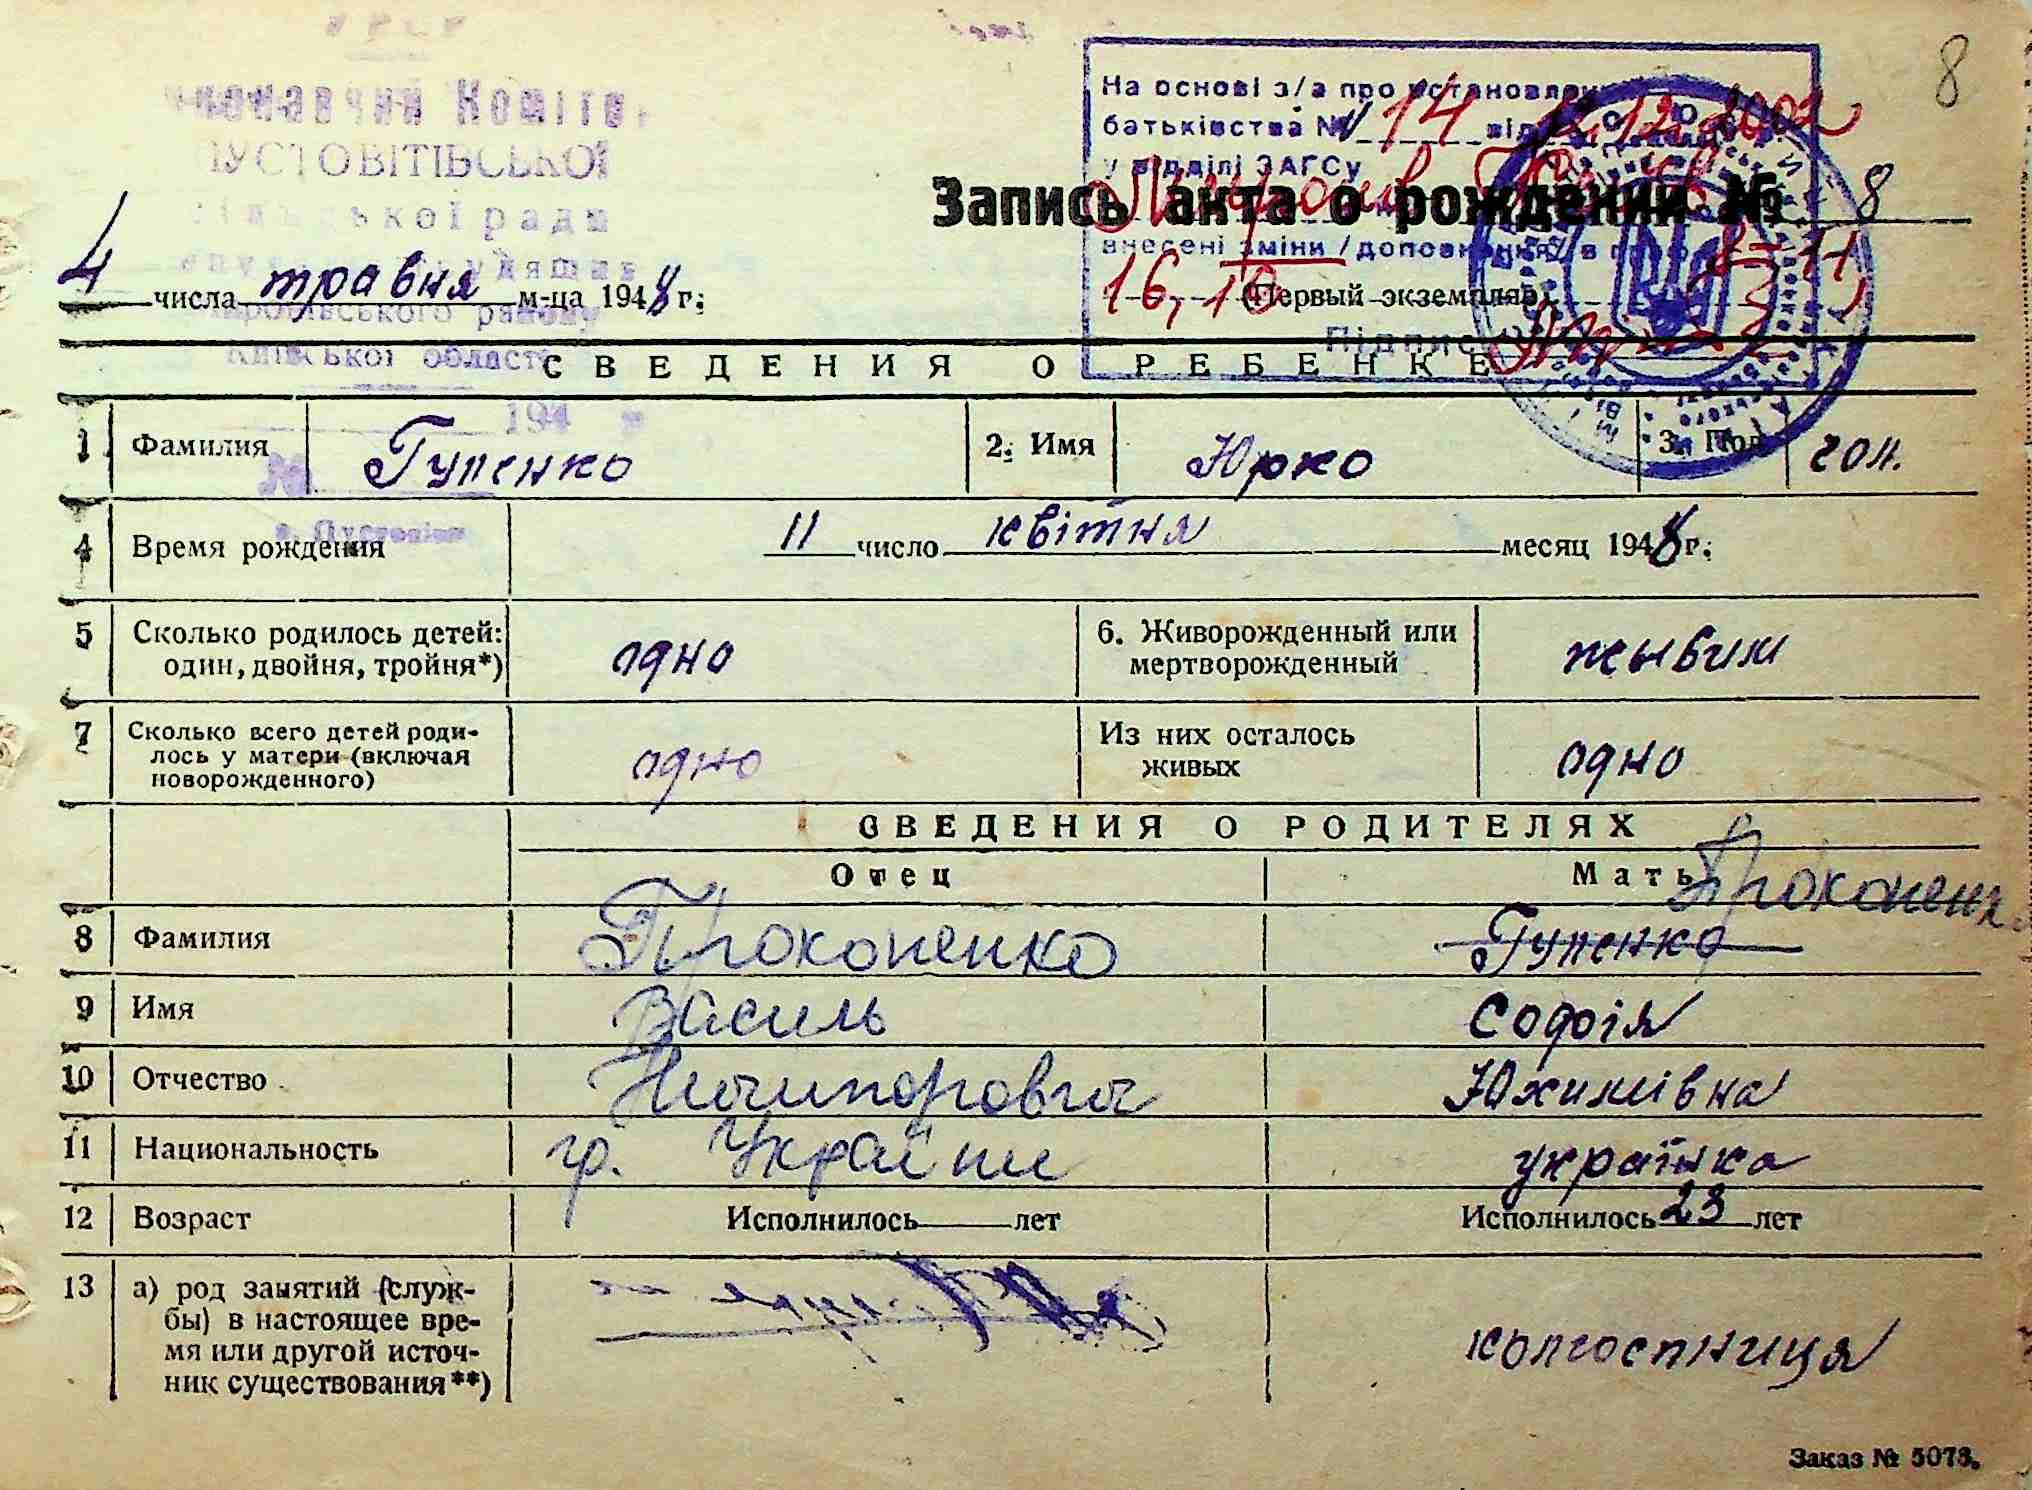 8
Виконавчий Комітет
ПУСТОВІТІВСЬКОЇ
сільської ради
депутатів трудящих
району
Київської області
194 р
№
с. Пустовіти
На основі з/а про установлення
батьківства № 14 від 12.2002
у відділі ЗАГСу
внесені зміни /доповнення/ в гр. 8-11
16, 19
Підпис
Запись акта о рождении № 8
4 числа травня м-ца 1948 г.
(Первый экземпляр)
СВЕДЕНИЯ О РЕБЕНКЕ
1 Фамилия Гупенко 2. Имя Юрко 3. Пол чол.
4 Время рождения 11 число квітня месяц 1948 г.
5 Сколько родилось детей: один, двойня, тройня*) одно 6. Живорожденный или мертворожденный жывим
7 Сколько всего детей родилось у матери (включая новорожденного) одно Из них осталось живых одно
СВЕДЕНИЯ О РОДИТЕЛЯХ
Отец Мать
Прокопенко
8 Фамилия Прокопенко Гупенко
9 Имя Василь Софія
10 Отчество Ничипорович Юхимівна
11 Национальность гр. України українка
12 Возраст Исполнилось лет Исполнилось 23 лет
13 а) род занятий (служ-
бы) в настоящее вре-
мя или другой источ-
ник существования**) колгоспниця
Заказ № 5073.